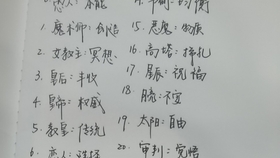 愚人：本能
1. 魔术师：创造
2. 女教主：冥想
3. 皇后：丰收
4. 皇帝：权威
5. 教皇：传统
6. 恋人：选择
15. 恶魔：
16. 高塔：挣扎
17. 星辰：祝福
18. 月亮：不安
19. 太阳：自由
20. 审判：觉悟